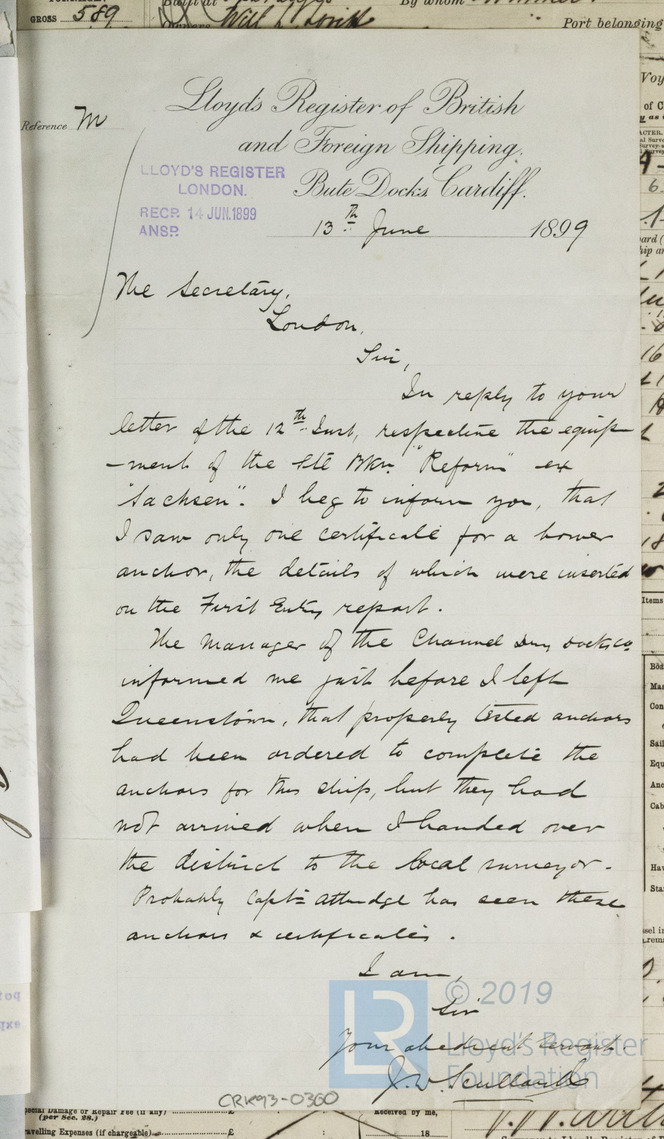 GROSS 589
Built at
By whom
Port belonging
Reference M
Lloyds Register of British
and Foreign Shipping.
Bute Docks, Cardiff.
LLOYD'S REGISTER
LONDON.
RECD. 14 JUN. 1899
ANSD.
13th June 1899
The Secretary,
London,
Sir,
In reply to your
letter of the 12th Inst, respecting the equip
-ment of the Stl Bkn "Reform" ex
"Sachsen". I beg to inform you, that
I saw only one certificate for a bower
anchor, the details of which were inserted
on the First Entry report.
The Manager of the Channel Dry Docks Co
informed me just before I left
Queenstown, that properly tested anchors
had been ordered to complete the
anchors for this ship, but they had
not arrived when I handed over
the district to the local surveyor.
Probably Captn Attridge has seen these
anchors & certificates.
I am,
Sir
Your obedient Servant
J. W. Scullard
© 2019
LR
Lloyd's Register
Foundation
CRK93-0360
Special Damage or Repair Fee (if any) £
(per Sec. 28.)
Travelling Expenses (if chargeable) £
Received by me,
18